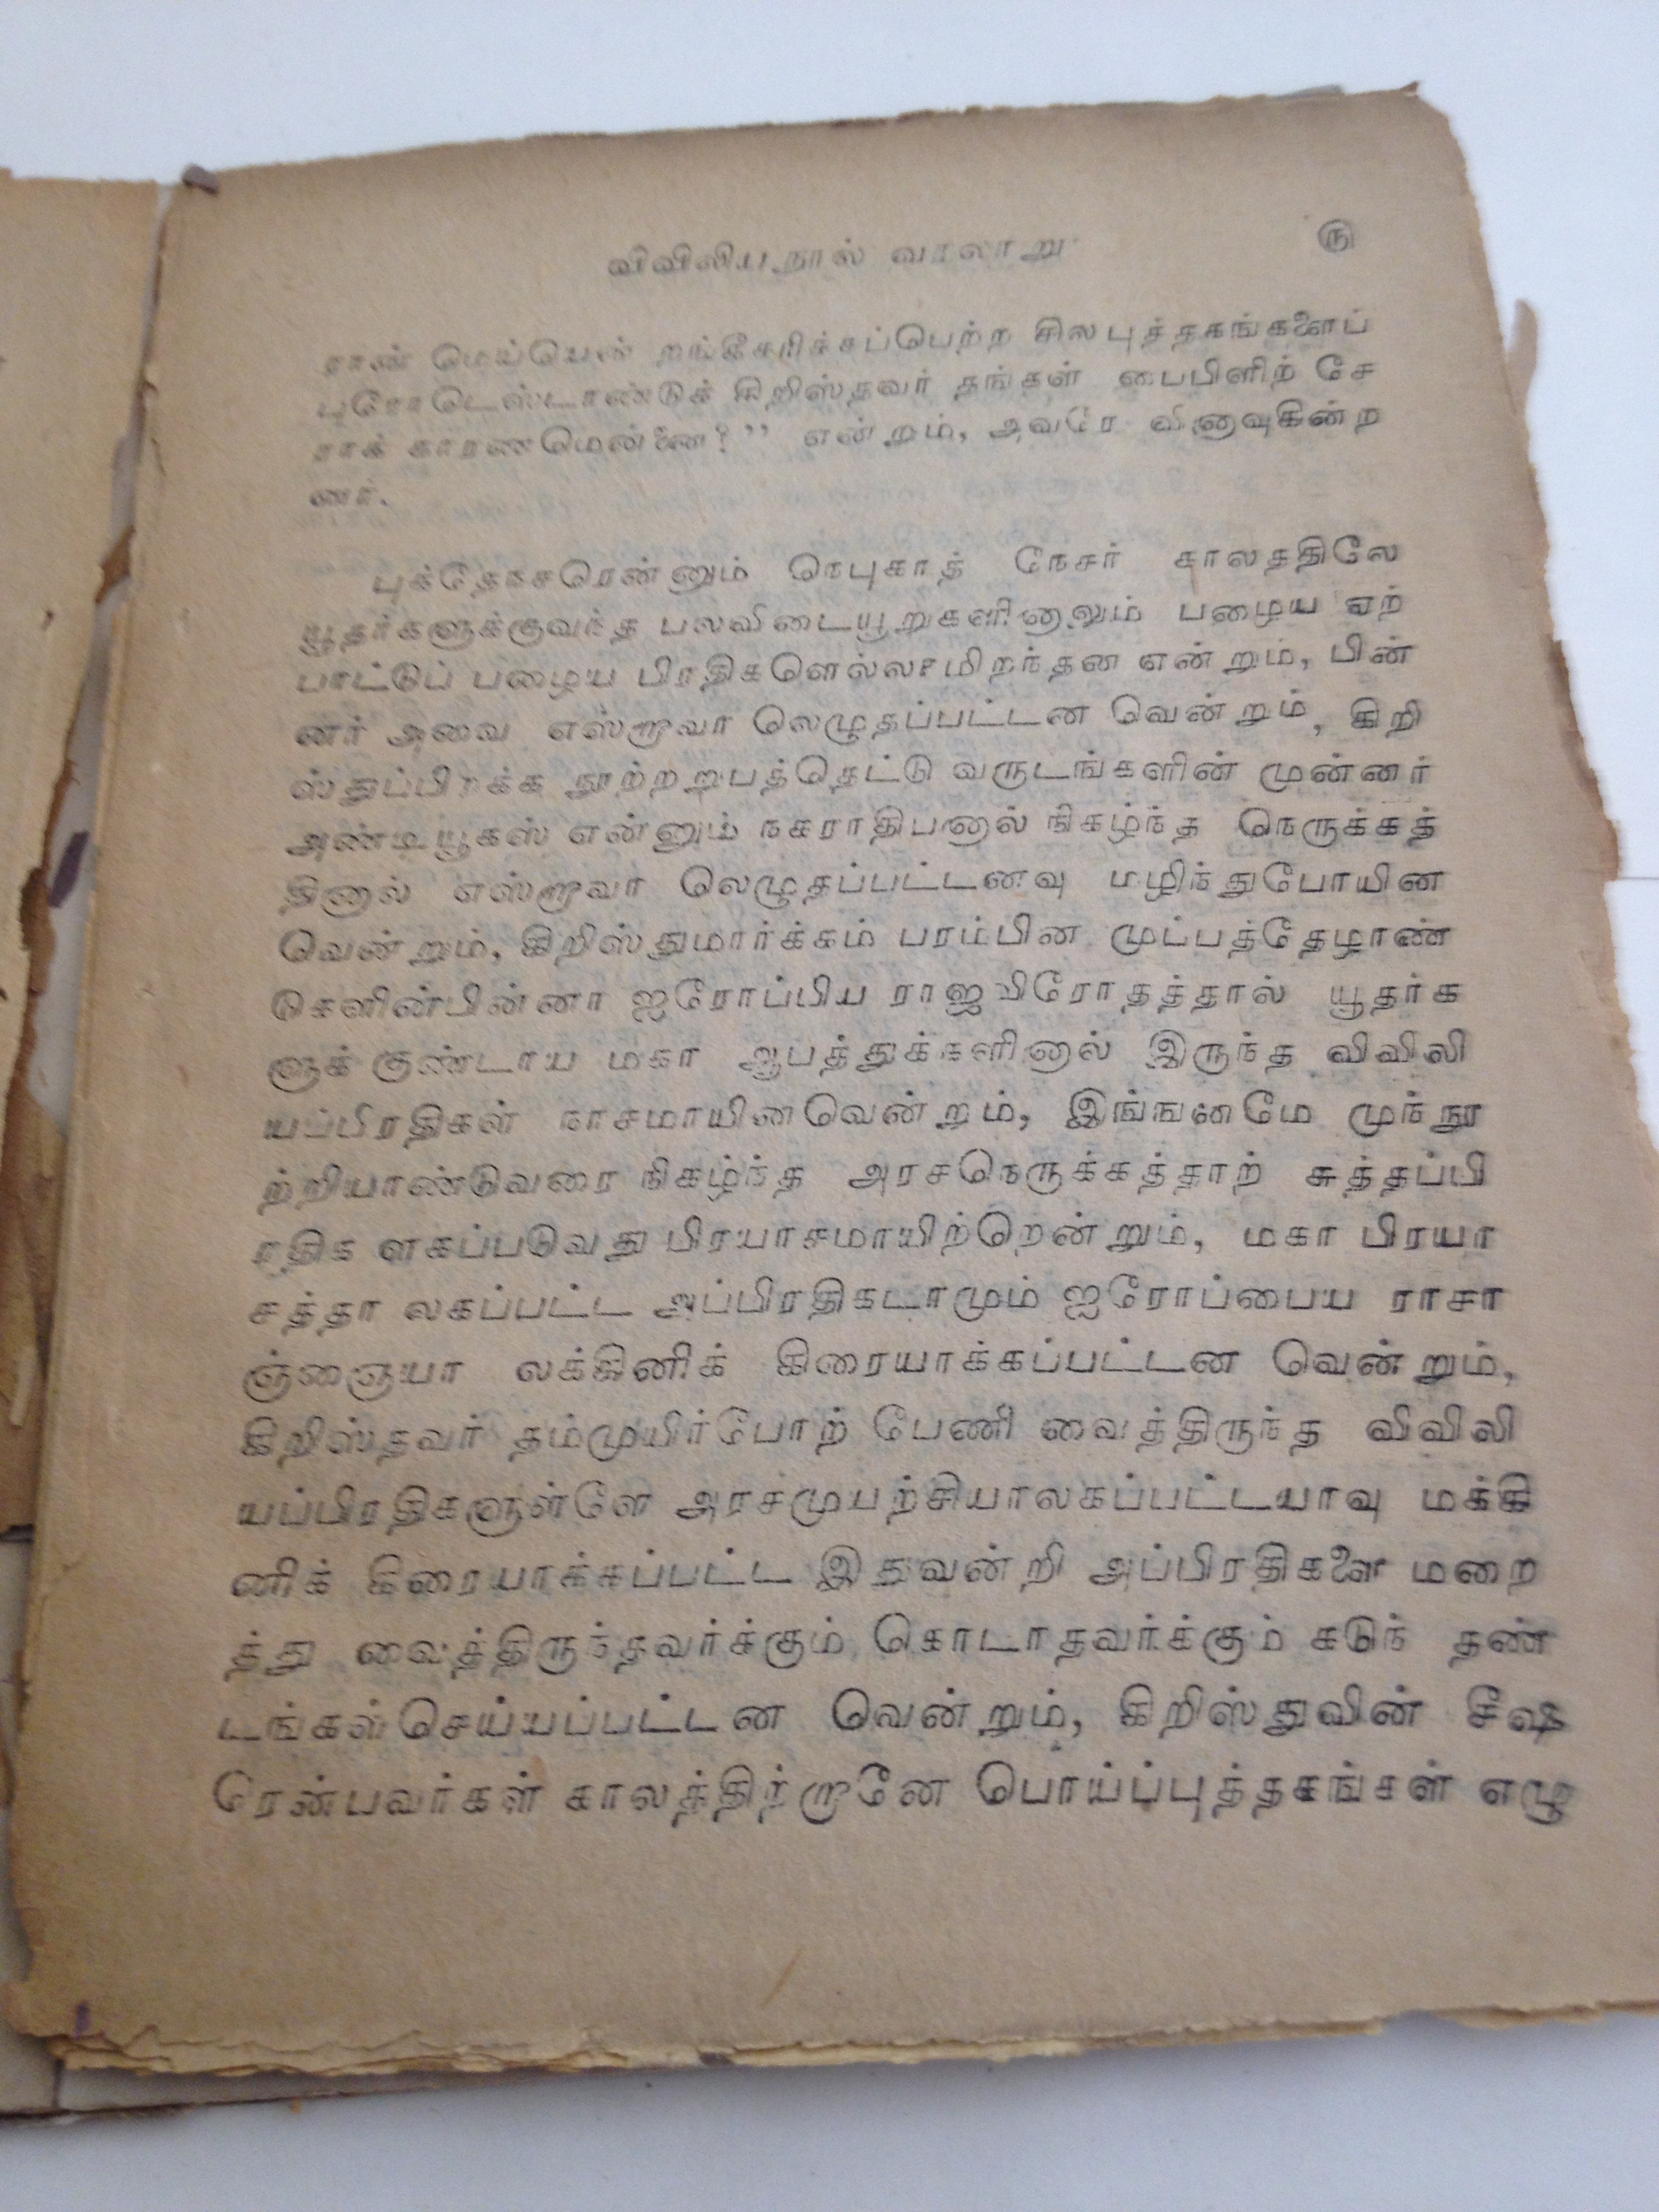 விவிலியநூல் வரலாறு ௫
ரான் மெய்யென் றங்கீகரிக்கப்பெற்ற சிலபுத்தகங்களைப்
புரோடெஸ்டாண்டுக் கிறிஸ்தவர் தங்கள் பைபிளிற் சே
ராக் காரணமென்னை?” என்றும், அவரே வினாவுகின்ற
னர்.
புக்தநேசரென்னும் நெபுகாத் நேசர் காலத்திலே
யூதர்களுக்குவந்த பலவிடையூறுகளினாலும் பழைய ஏற்
பாட்டுப் பழைய பிரதிகளெல்லாமிறந்தன என்றும், பின்
னர் அவை எஸ்றாவா லெழுதப்பட்டன வென்றும், கிறி
ஸ்துப்பிறக்க நூற்றறுபத்தெட்டு வருடங்களின் முன்னர்
அண்டியூகஸ் என்னும் நகராதிபனால் நிகழ்ந்த நெருக்கத்
தினால் எஸ்றாவா லெழுதப்பட்டனவு மழிந்துபோயின
வென்றும், கிறிஸ்துமார்க்கம் பரம்பின முப்பத்தேழாண்
டுகளின்பின்னா ஐரோப்பிய ராஜவிரோதத்தால் யூதர்க
ளுக் குண்டாய மகா ஆபத்துக்களினால் இருந்த விவிலி
யப்பிரதிகள் நாசமாயினவென்றும், இங்ஙனமே முந்நூ
ற்றியாண்டுவரை நிகழ்ந்த அரசநெருக்கத்தாற் சுத்தப்பி
ரதிக ளகப்படுவது பிரயாசமாயிற்றென்றும், மகா பிரயா
சத்தா லகப்பட்ட அப்பிரதிகடாமும் ஐரோப்பைய ராசா
ஞ்ஞையா லக்கினிக் கிரையாக்கப்பட்டன வென்றும்,
கிறிஸ்தவர் தம்முயிர்போற் பேணி வைத்திருந்த விவிலி
யப்பிரதிகளுள்ளே அரசமுயற்சியாலகப்பட்டயாவு மக்கி
னிக் கிரையாக்கப்பட்ட இதுவன்றி அப்பிரதிகளை மறை
த்து வைத்திருந்தவர்க்கும் கொடாதவர்க்கும் கடுந் தண்
டங்கள்செய்யப்பட்டன வென்றும், கிறிஸ்துவின் சீஷ
ரென்பவர்கள் காலத்திற்றானே பொய்ப்புத்தகங்கள் எழு